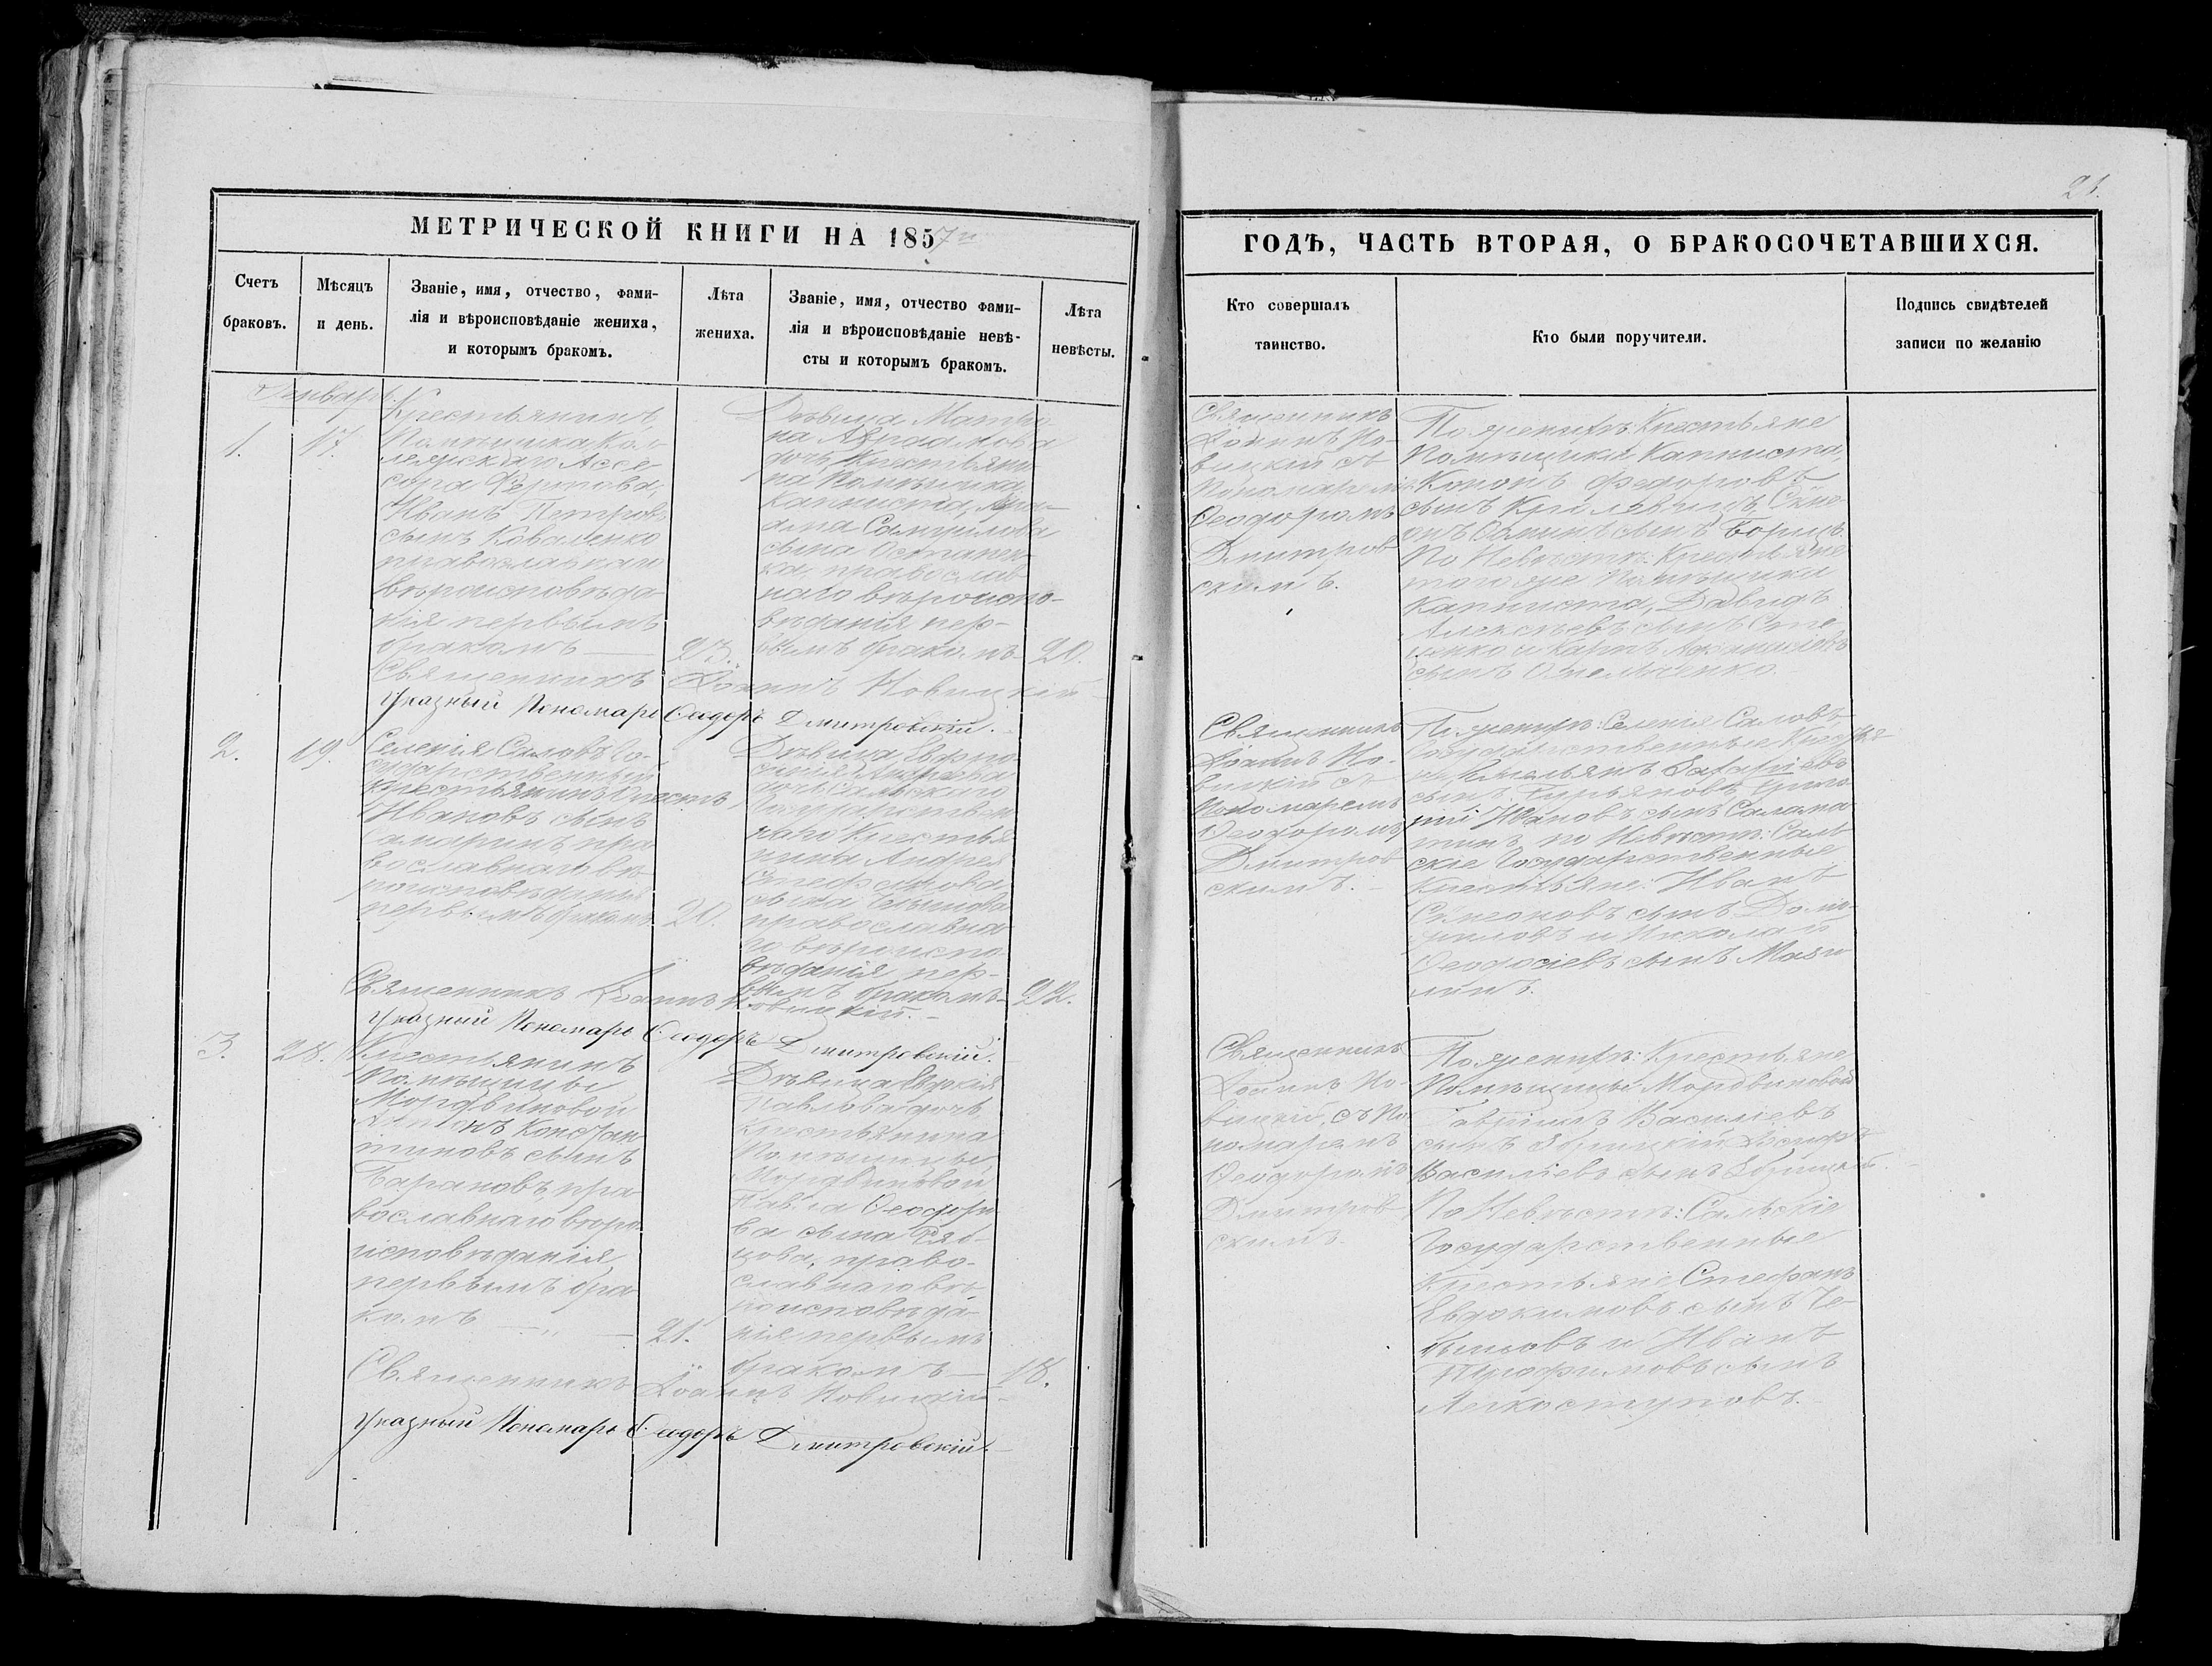 21.
МЕТРИЧЕСКОЙ КНИГИ НА 1857й
ГОДЪ, ЧАСТЬ ВТОРАЯ, О БРАКОСОЧЕТАВШИХСЯ.
Счетъ
браковъ.
Мѣсяцъ
и день.
Званіе, имя, отчество, фами-
лія и вѣроисповѣданіе жениха,
и которымъ бракомъ.
Лѣта
жениха.
Званіе, имя, отчество фами-
лія и вѣроисповѣданіе невѣ-
сты и которымъ бракомъ.
Лѣта
невѣсты.
Кто совершалъ
таинство.
Кто были поручители.
Подпись свидѣтелей
записи по желанію
Генварь
1.
17.
Крестьянинъ
Помѣщика Кол-
лежскаго Ассе
сора Фертова,
Иванъ Петровъ
сынъ Коваленко
православнаго
вѣроисповѣда-
нія первымъ
бракомъ
23.
Дѣвица Матро-
на Аврамова
дочь Крестьяни-
на Помѣщика
Капниста, Авра-
ама Самуилова
сына Остапен-
ка, православ-
наго вѣроиспо-
вѣданія пер-
вымъ бракомъ
20.
Священникъ
Іоаннъ Но-
вицкій съ
Пономаремъ
Ѳеодоромъ
Дмитров-
скимъ.
По женихѣ Крестьяне
Помѣщика Капниста,
Кононъ Федоровъ
сынъ
сынъ
По Невѣстѣ: Крестьяне
того же Помѣщика
Капниста, Давидъ
Алексѣевъ сынъ
сынъ Омельченко.
Священникъ Іоаннъ Новицкій
Указный Пономарь Ѳеодоръ Дмитровскій.
2.
19.
Селенія Саловъ Го-
сударственный
крестьянинъ
Ивановъ сынъ
Самаринъ пра
вославнаго вѣ
роисповѣданія
первымъ бракомъ
20.
Дѣвица Евфро-
синія Андреева
дочь Сальскаго
Государствен
наго Крестья
нина Андрея
Стефанова
сына
православна
го вѣроиспо
вѣданія пер-
вымъ бракомъ
22.
Священникъ
Іоаннъ Но-
вицкій съ
Пономаремъ
Ѳеодоромъ
Дмитров-
скимъ.
По женихѣ: Селенія Саловъ
Государственные Крестья
не Емельянъ Захаріевъ
сынъ Григо
рій Ивановъ сынъ Салама
тинъ, по Невѣстѣ: Саль
скіе Государственные
Крестьяне: Иванъ
Симеоновъ сынъ
и Николай
Ѳеодосіевъ сынъ
Священникъ Іоаннъ Новицкій.
Указный Пономарь Ѳеодоръ Дмитровскій.
3.
28.
Крестьянинъ
Помѣщицы
Мордвиновой
Антонъ Констан
тиновъ сынъ
Барановъ, пра
вославнаго вѣро
исповѣданія,
первымъ бра
комъ
21.
Дѣвица Евфкія
Павлова дочь
крестьянина
Помѣщицы
Мордвиновой
Павла Ѳеодоро
ва сына Ряб-
цова, право-
славнаго вѣ-
роисповѣда-
нія первымъ
бракомъ
18.
Священникъ
Іоаннъ Но-
вицкій, съ По
номаремъ
Ѳеодоромъ
Дмитров
скимъ.
По женихѣ: Крестьяне
Помѣщицы Мордвиновой
Гавріилъ Василіевъ
сынъ
Василіевъ сынъ
По Невѣстѣ: Сальскіе
Государственные
Крестьяне Стефанъ
Евдокимовъ сынъ Че-
бышовъ и Иванъ
Трофимовъ сынъ
Легкоступовъ.
Священникъ Іоаннъ Новицкій
Указный Пономарь Ѳеодоръ Дмитровскій.